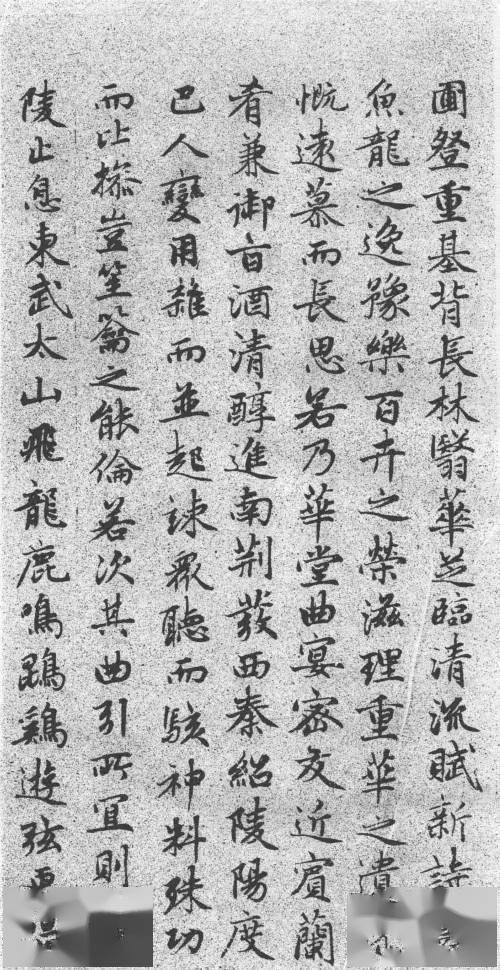 圃登重基背長林翳華芝臨清流賦新詩
魚龍之逸豫樂百卉之榮滋理重華之遺
慨遠慕而長思若乃華堂曲宴密友近賓蘭
肴兼御旨酒清醇進南荊發西秦紹陵陽度
巴人變用雜而並起竦眾聽而駭神料殊功
而比操豈笙籥之能倫若次其曲引所宜則
陵止息東武太山飛龍鹿鳴鵾鷄遊弦更